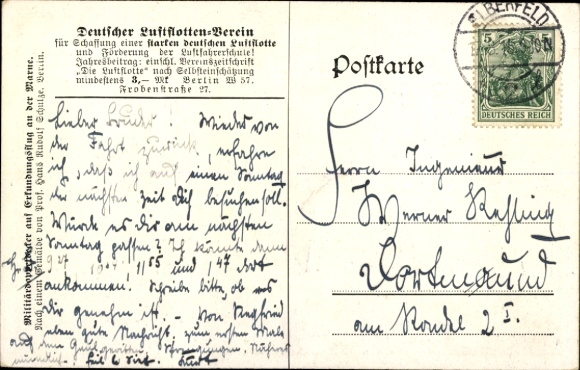 Deutscher Luftflotten-Verein
für Schaffung einer starken deutschen Luftflotte
und Förderung der Luftfahrerschule!
Jahresbeitrag: einschl. Vereinszeitschrift
„Die Luftflotte" nach Selbsteinschätzung
mindestens 3,— Mk Berlin W 57.
Frobenstraße 27.
Militärdoppeldecker auf Erkundungsflug an der Marne.
Nach einem Gemälde von Prof. Hans Rudolf Schulze, Berlin.
Lieber Bruder! Wieder von
der Fahrt zurück, erfahre
ich, daß ich auf einen Sonntag
der nächsten Zeit dich besuchen soll.
Würde es dir am nächsten
Sonntag passen? Ich könnte dann
9 27 1 55 und 1 47 dort
ankommen. Schreibe bitte, ob es
dir genehm ist. – Von Siegfried
eben gute Nachricht, zum ersten Mals
auf dem Gaul geritten. Näheres
mündlich. Heil & Sieg. Kurt
Postkarte
ELBERFELD
5 5
DEUTSCHES REICH
Herrn Ingenieur
Werner
Dortmund
am Rondel 2 I.